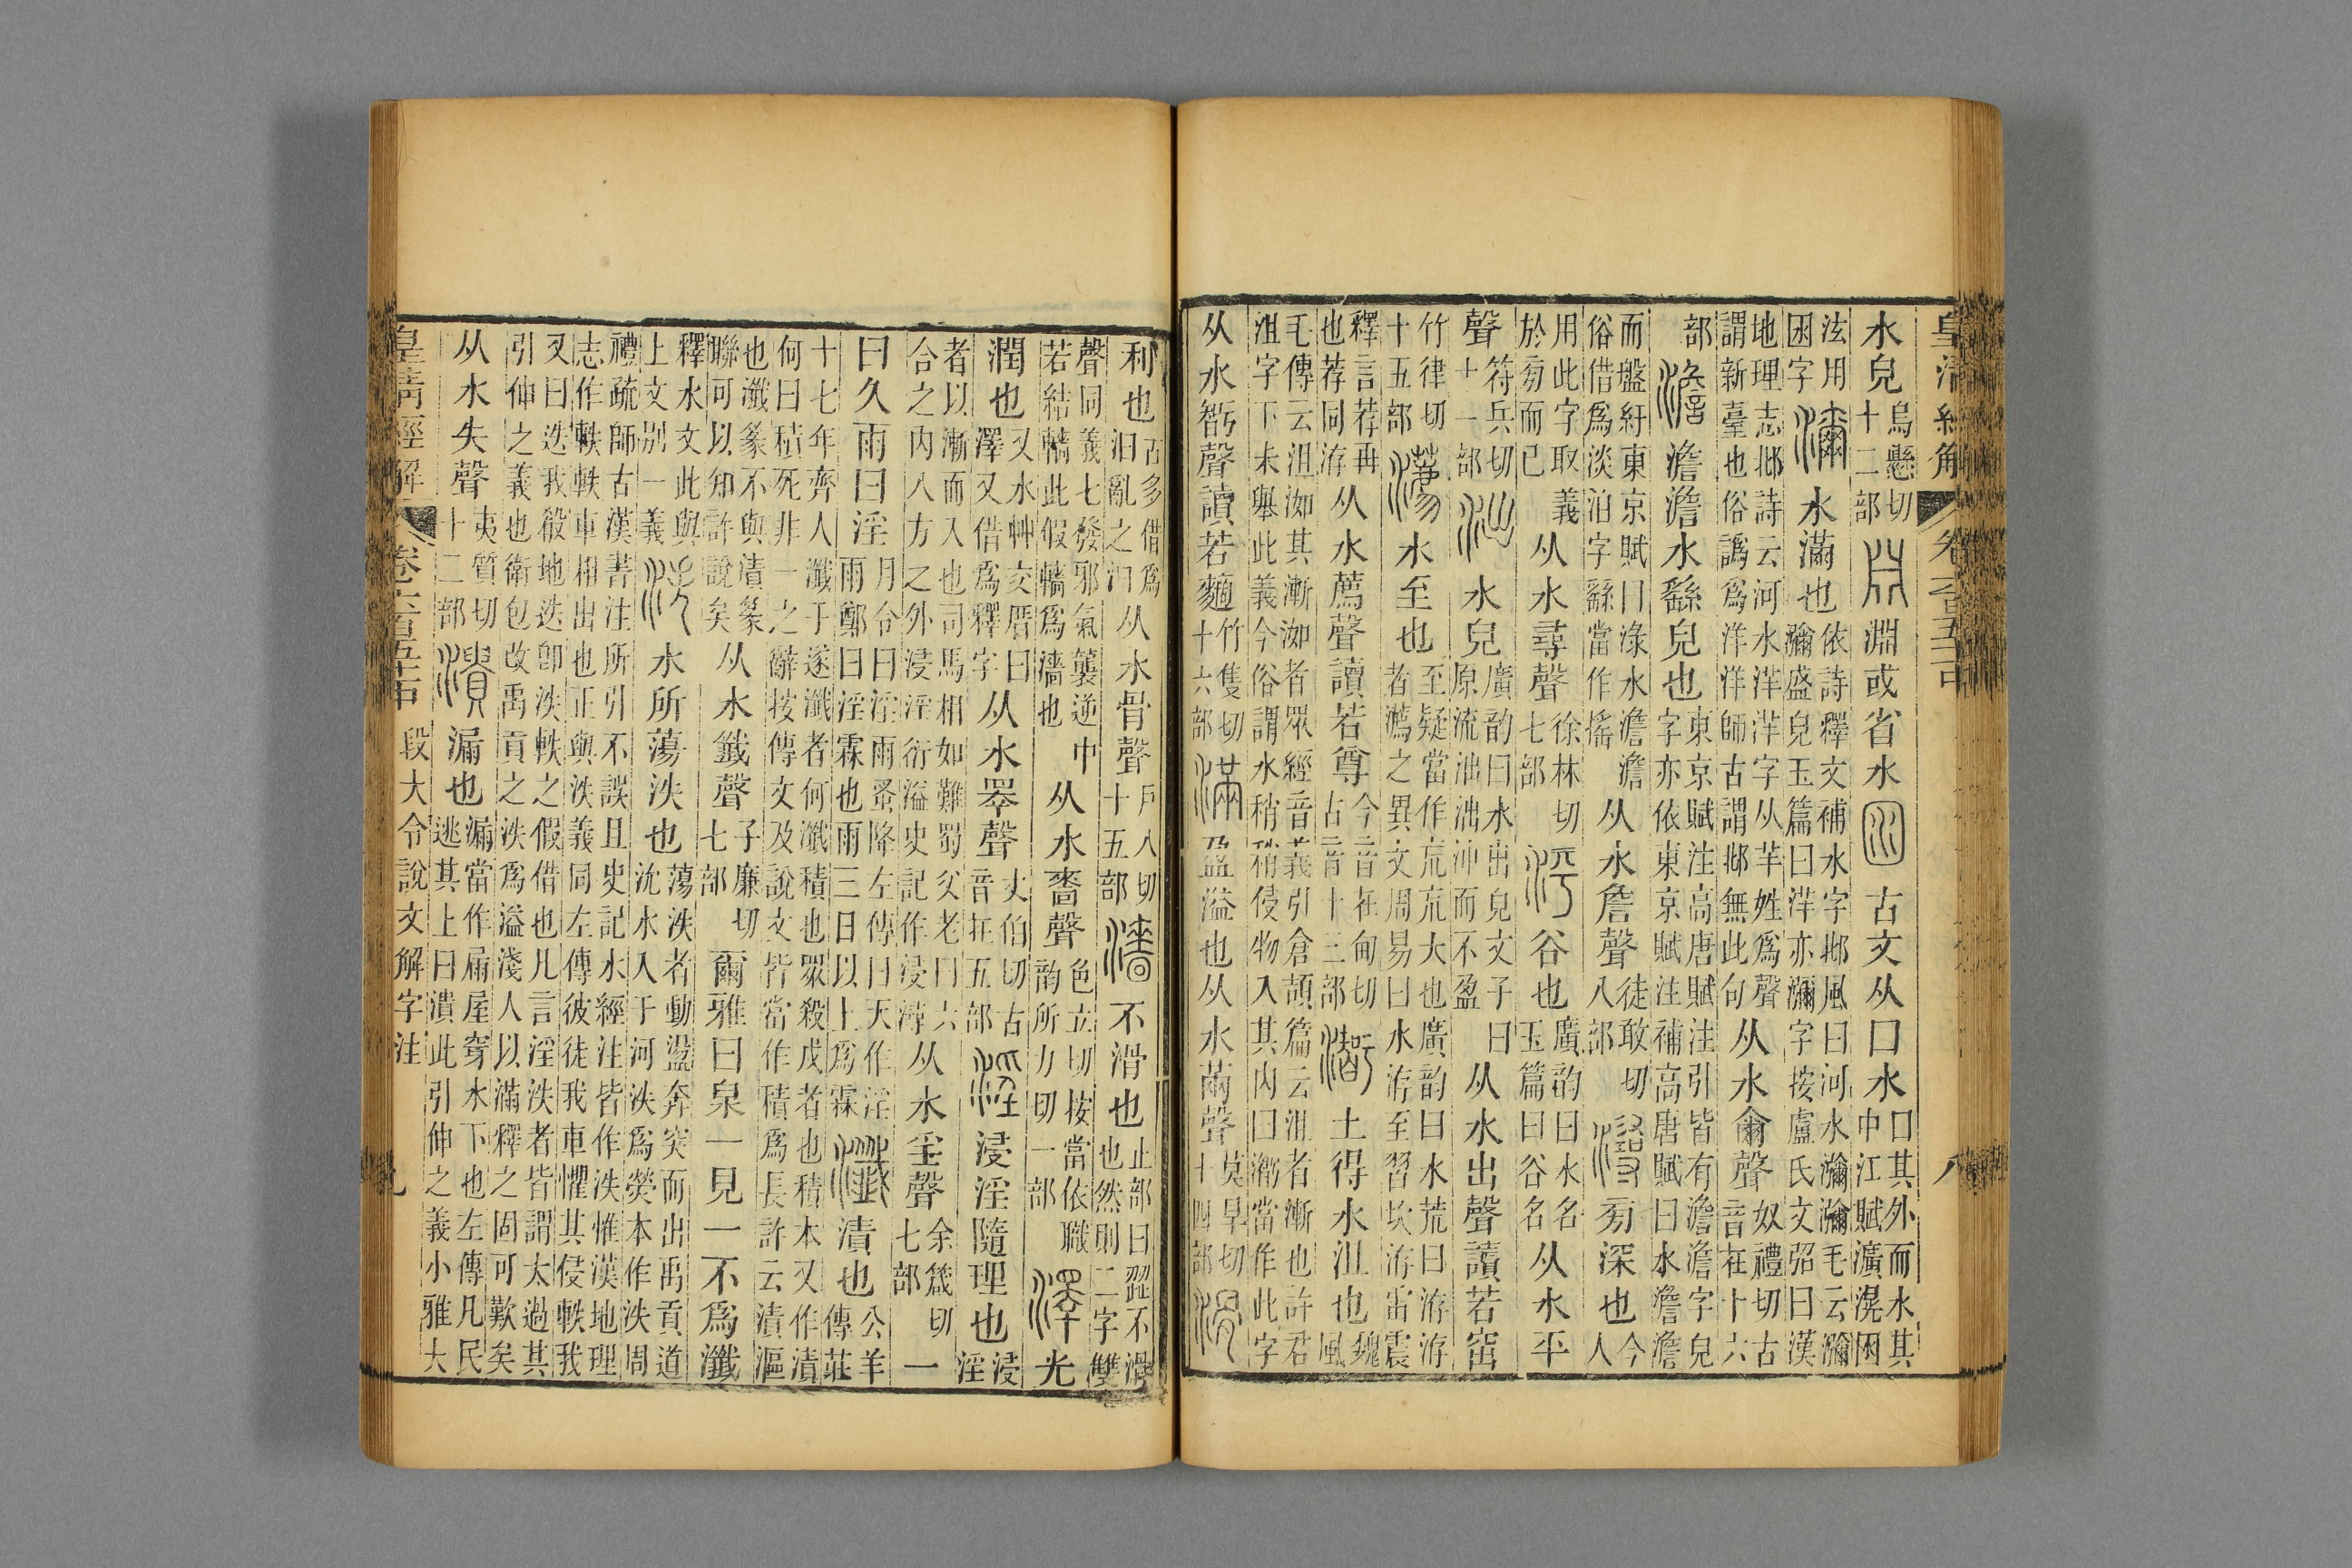 皇清經解 卷六百五十四 八
水皃烏懸切十二部淵或省水古文从囗水囗其外而水其中江賦瀇滉囦
泫用囦字濔水滿也依詩釋文補水字邶風曰河水瀰瀰毛云瀰瀰盛皃玉篇曰洋亦瀰字按盧氏文弨曰漢
地理志邶詩云河水洋洋字从芊姓爲聲謂新臺也俗譌爲洋洋師古謂邶無此句从水爾聲奴禮切古音在十六
部澹澹澹水繇皃也東京賦注高唐賦注引皆有澹澹字皃字亦依東京賦注補高唐賦曰水澹澹
而盤紆東京賦曰淥水澹澹俗借爲淡泊字繇當作搖从水詹聲徒敢切八部潯㫄深也今人
用此字取義於㫄而已从水尋聲徐林切七部泙谷也廣韵曰水名玉篇曰谷名从水平
聲符兵切十一部泏水皃廣韵曰水出皃文子曰原流泏泏沖而不盈从水出聲讀若窋
竹律切十五部瀳水至也至疑當作㠩㠩大也廣韵曰水荒曰洊洊者瀳之異文周易曰水洊至習坎洊雷震
釋言荐再也荐同洊从水薦聲讀若尊今音在甸切古音十三部土得水沮也魏風
毛傳云沮洳其漸洳者眾經音義引倉頡篇云沮者漸也許君沮字下未舉此義今俗謂水稍稍侵物入其内曰㵫當作此字
从水𥏼聲讀若麵竹隻切十六部滿盈溢也从水㒼聲莫旱切十四部滑
利也古多借爲汨亂之汨从水骨聲戶八切十五部濇不滑也止部曰澀不滑也然則二字雙
聲同義七發邪氣襲逆中若結轖此假轖爲濇也从水嗇聲色立切按當依職韵所力切一部澤光
潤也又水艸交厝曰澤又借爲釋字从水睪聲丈伯切古音在五部淫浸淫隨理也浸淫
者以漸而入也司馬相如難蜀父老曰六合之内八方之外浸淫衍溢史記作浸潯从水㸒聲余箴切七部一
曰久雨曰淫月令曰淫雨蚤降左傳曰天作淫雨鄭曰淫霖也雨三日以上爲霖瀸漬也公羊傳莊
十七年齊人瀸于遂瀸者何瀸積也眾殺戍者也積本又作漬何曰積死非一之辭按傳文及說文皆當作積爲長許云漬漚
也瀸篆不與漬篆聯可以知許說矣从水韱聲子廉切七部爾雅曰泉一見一不爲瀸
釋水文此與上文別一義泆水所蕩泆也蕩泆者動盪奔突而出禹貢道沇水入于河泆爲熒本作泆周
禮疏師古漢書注所引不誤且史記水經注皆作泆惟漢地理志作軼軼車相出也正與泆義同左傳彼徒我車懼其侵軼我
又曰迭我殽地迭卽泆軼之假借也凡言淫泆者皆謂太過其引伸之義也衛包改禹貢之泆爲溢淺人以滿釋之固可歎矣
从水失聲夷質切十二部潰漏也漏當作屚屋穿水下也左傳凡民逃其上曰潰此引伸之義小雅大
皇清經解 卷六百五十四 段大令說文解字注 九